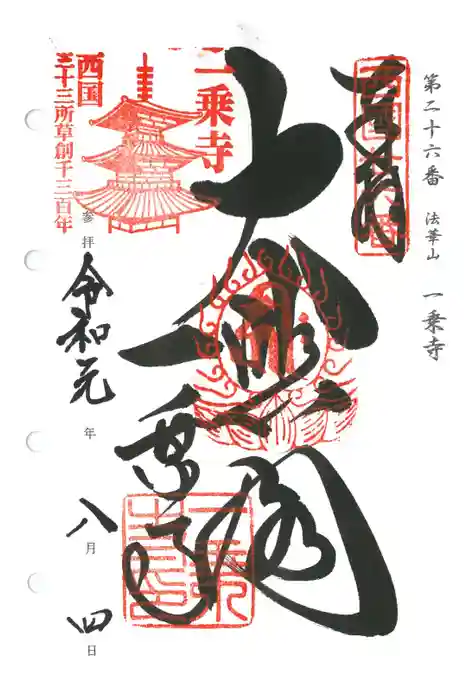 第二十六番 法華山 一乗寺
奉拝
西国廿六番
大悲閣
一乗寺
一乗寺
西国
三十三所草創千三百年
参拝
令和元年八月四日